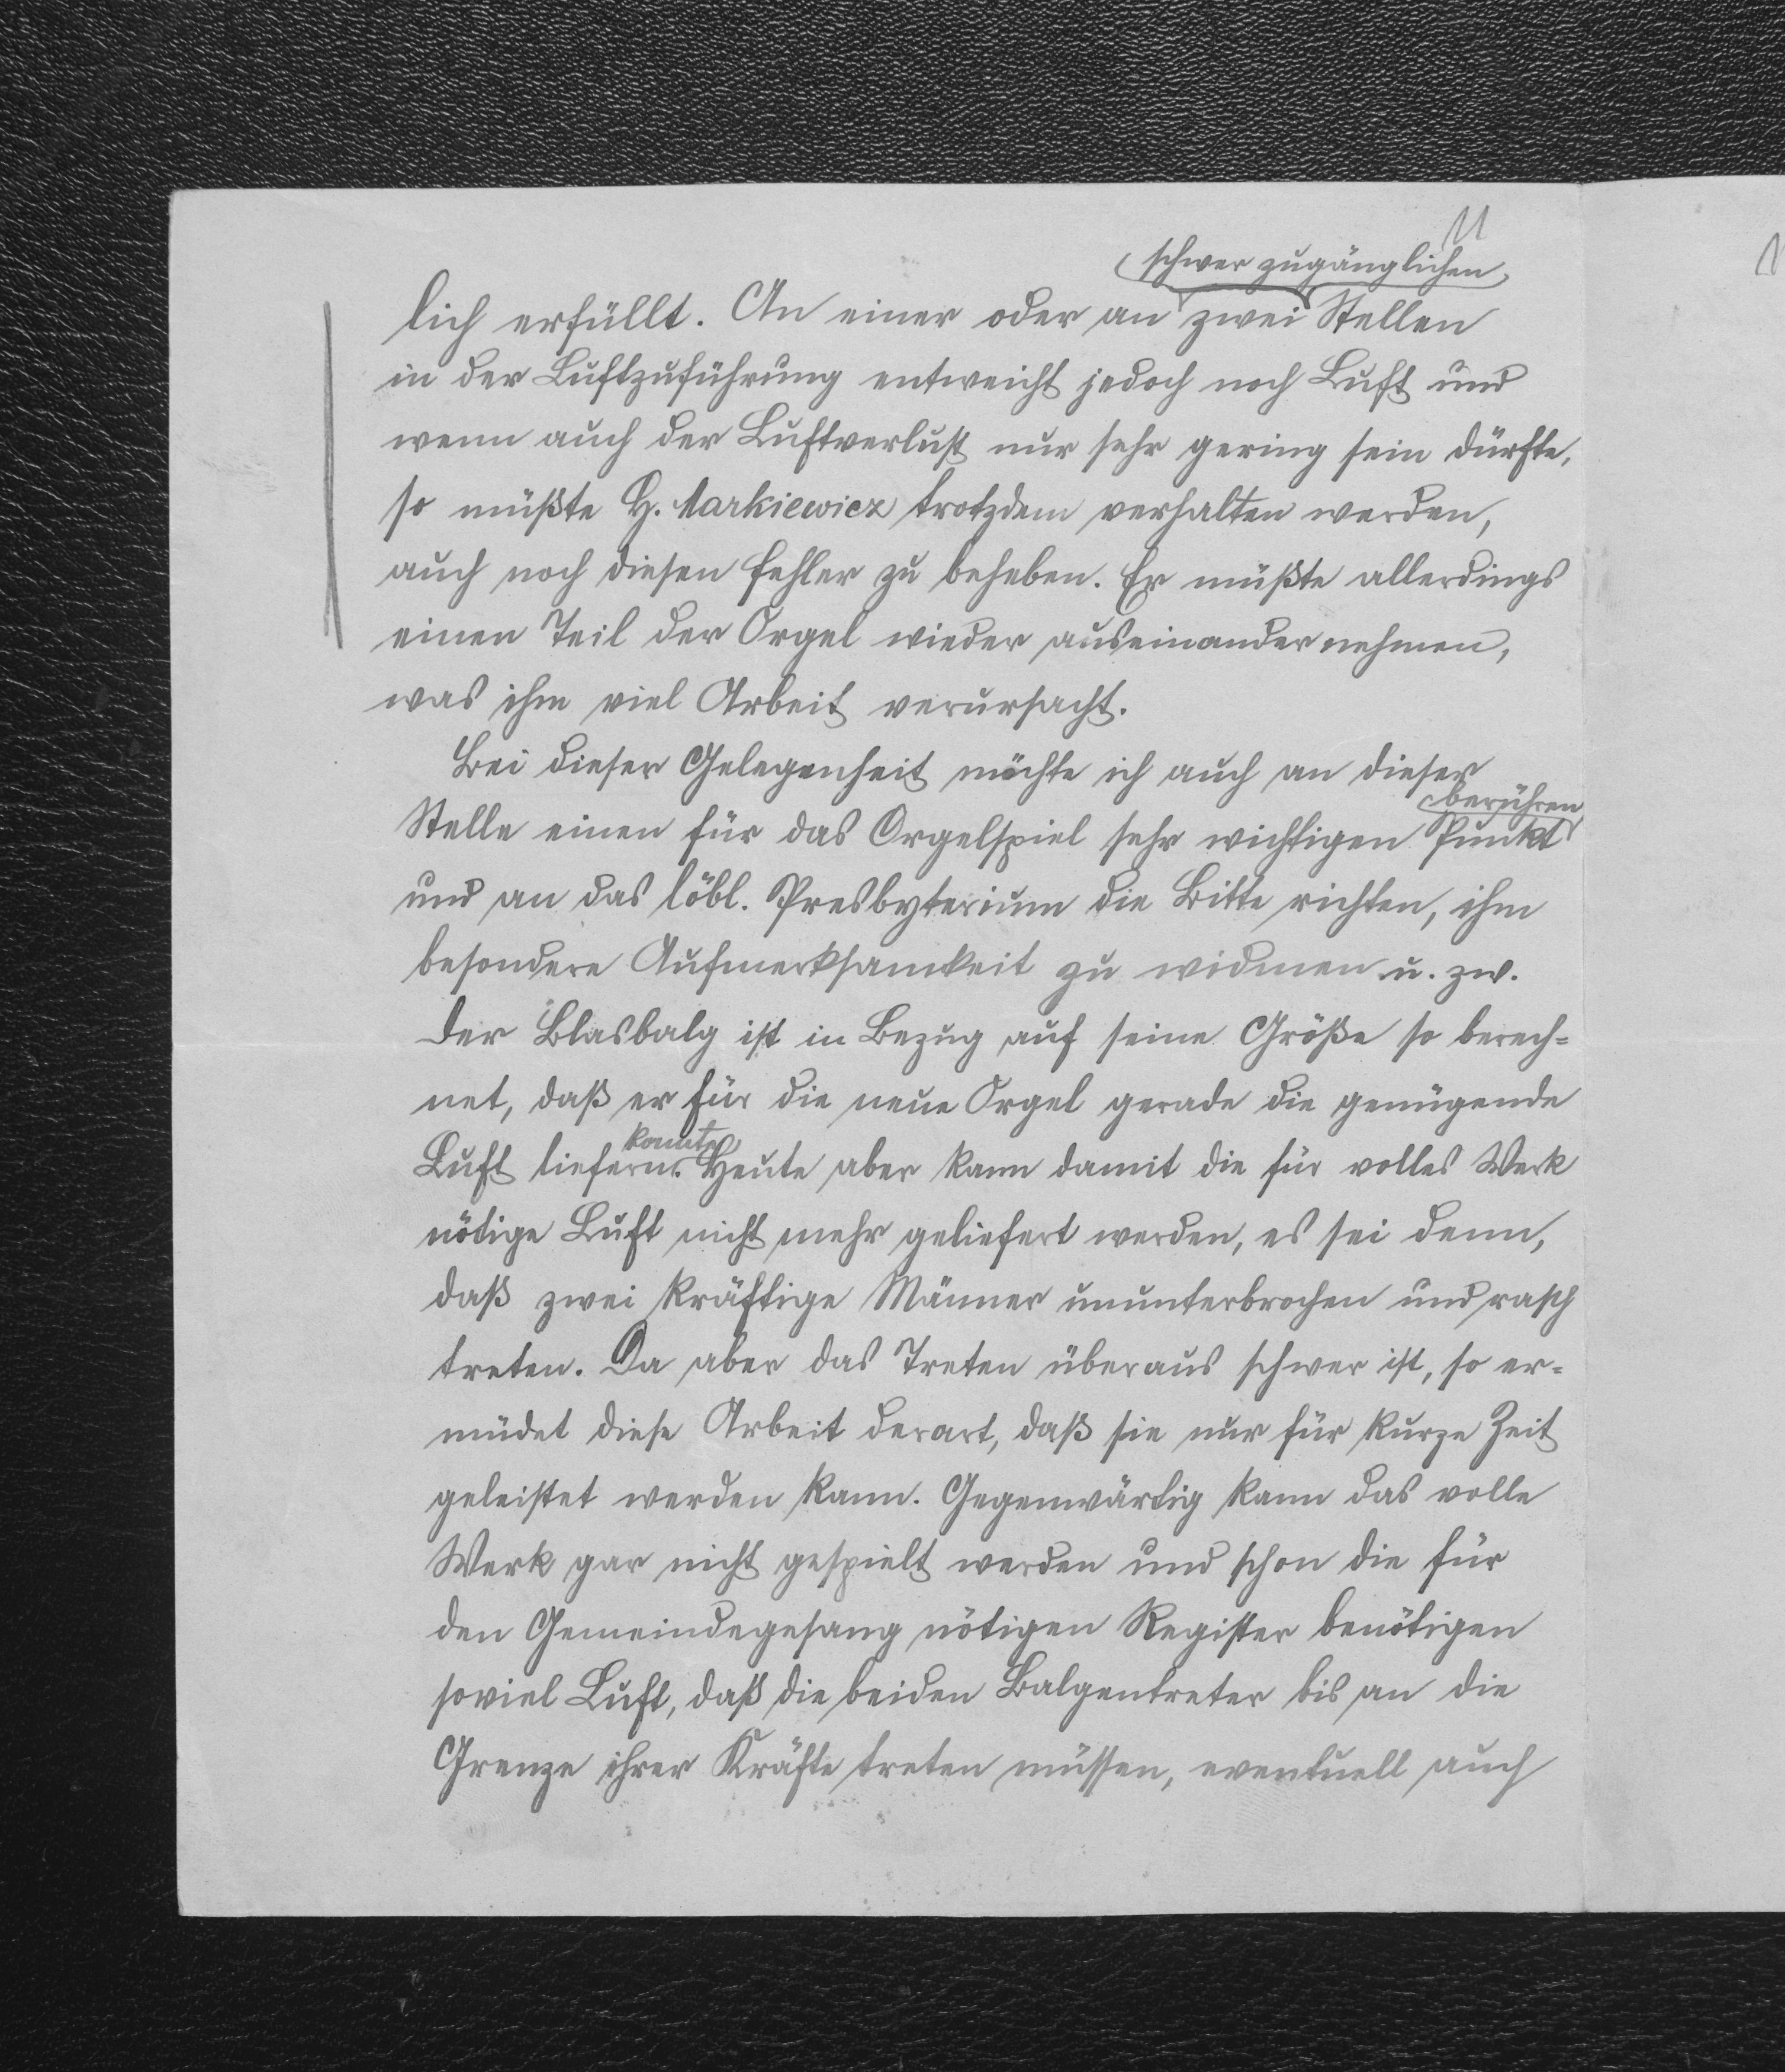 schwer zugänglichen
lich erfüllt. An einer oder an zwei Stellen
in der Luftzuführung entweicht jedoch noch Luft und
wenn auch der Luftverlust nur sehr gering sein dürfte,
so müßte H. Markiewicz trotzdem verhalten werden,
auch noch diesen Fehler zu beheben. Er müßte allerdings
einen Teil der Orgel wieder auseinander nehmen,
was ihm viel Arbeit verursacht.
Bei dieser Gelegenheit möchte ich auch an dieser
berühren
Stelle einen für das Orgelspiel sehr wichtigen Punkt
und an das löbl. Presbyterium die Bitte richten, ihm
besondere Aufmerksamkeit zu widmen u. zw.
Der Blasbalg ist in Bezug auf seine Größe so berech=
net, daß er für die neue Orgel gerade die genügende
konnte
Luft liefern. Heute aber kann damit die für volles Werk
nötige Luft nicht mehr geliefert werden, es sei denn,
daß zwei kräftige Männer ununterbrochen und rasch
treten. Da aber das Treten überaus schwer ist, so er=
müdet diese Arbeit derart, daß sie nur für kurze Zeit
geleistet werden kann. Gegenwärtig kann das volle
Werk gar nicht gespielt werden und schon die für
den Gemeindegesang nötigen Register benötigen
soviel Luft, daß die beiden Balgentreter bis an die
Grenze ihrer Kräfte treten müssen, eventuell auch